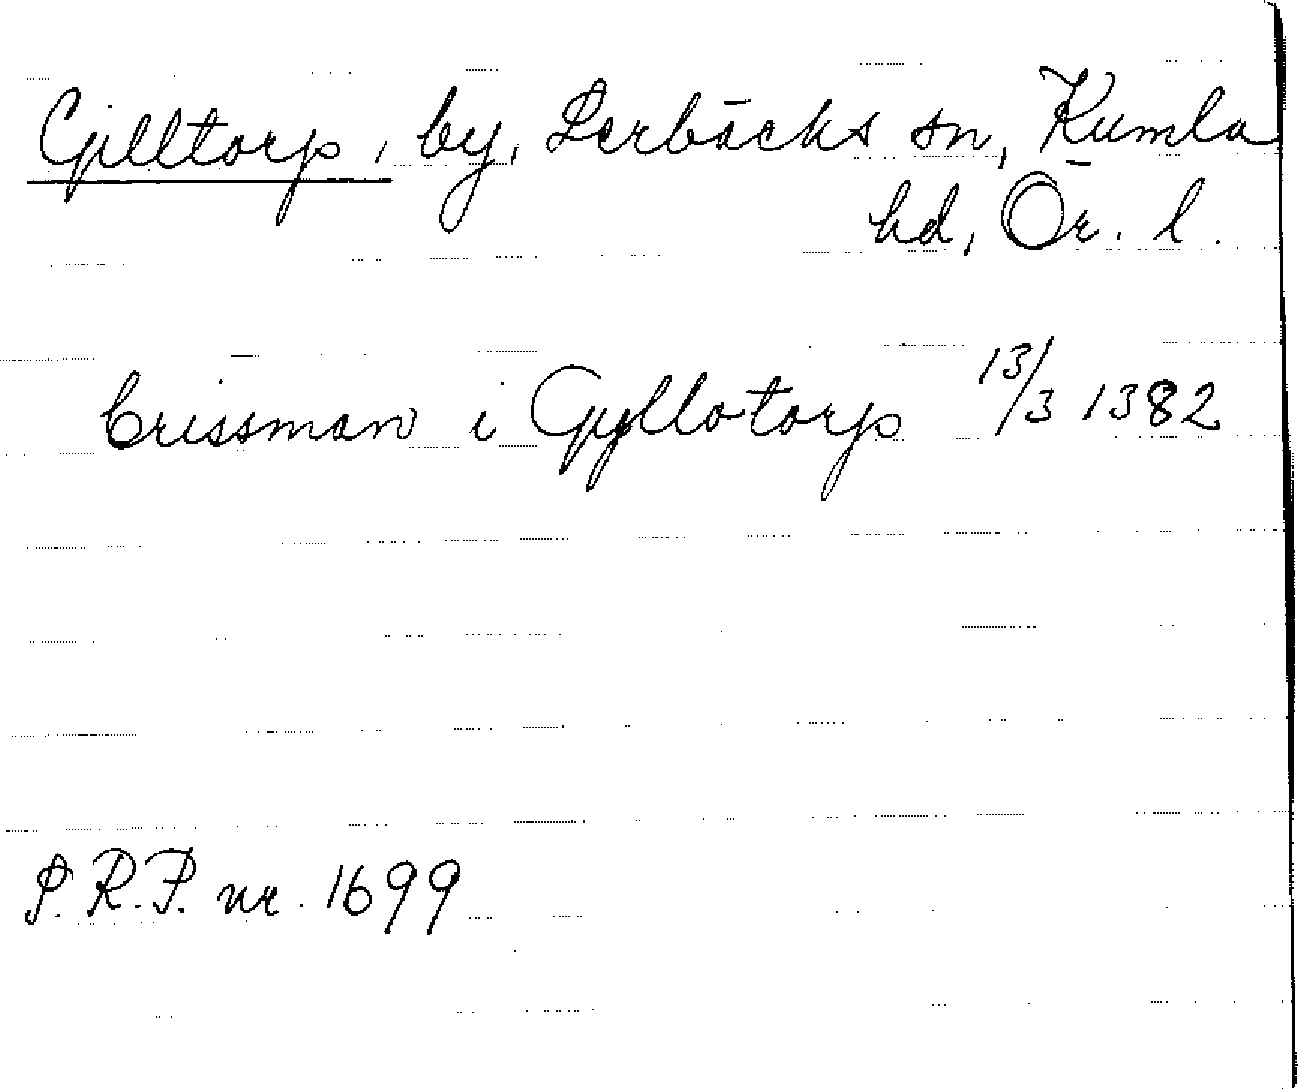 Gilltorp, by, Lerbäcks sn, Kumla
hd, Ör. l.
Crissman i Gyllotorp 13/3 1382
S.R.P. nr. 1699